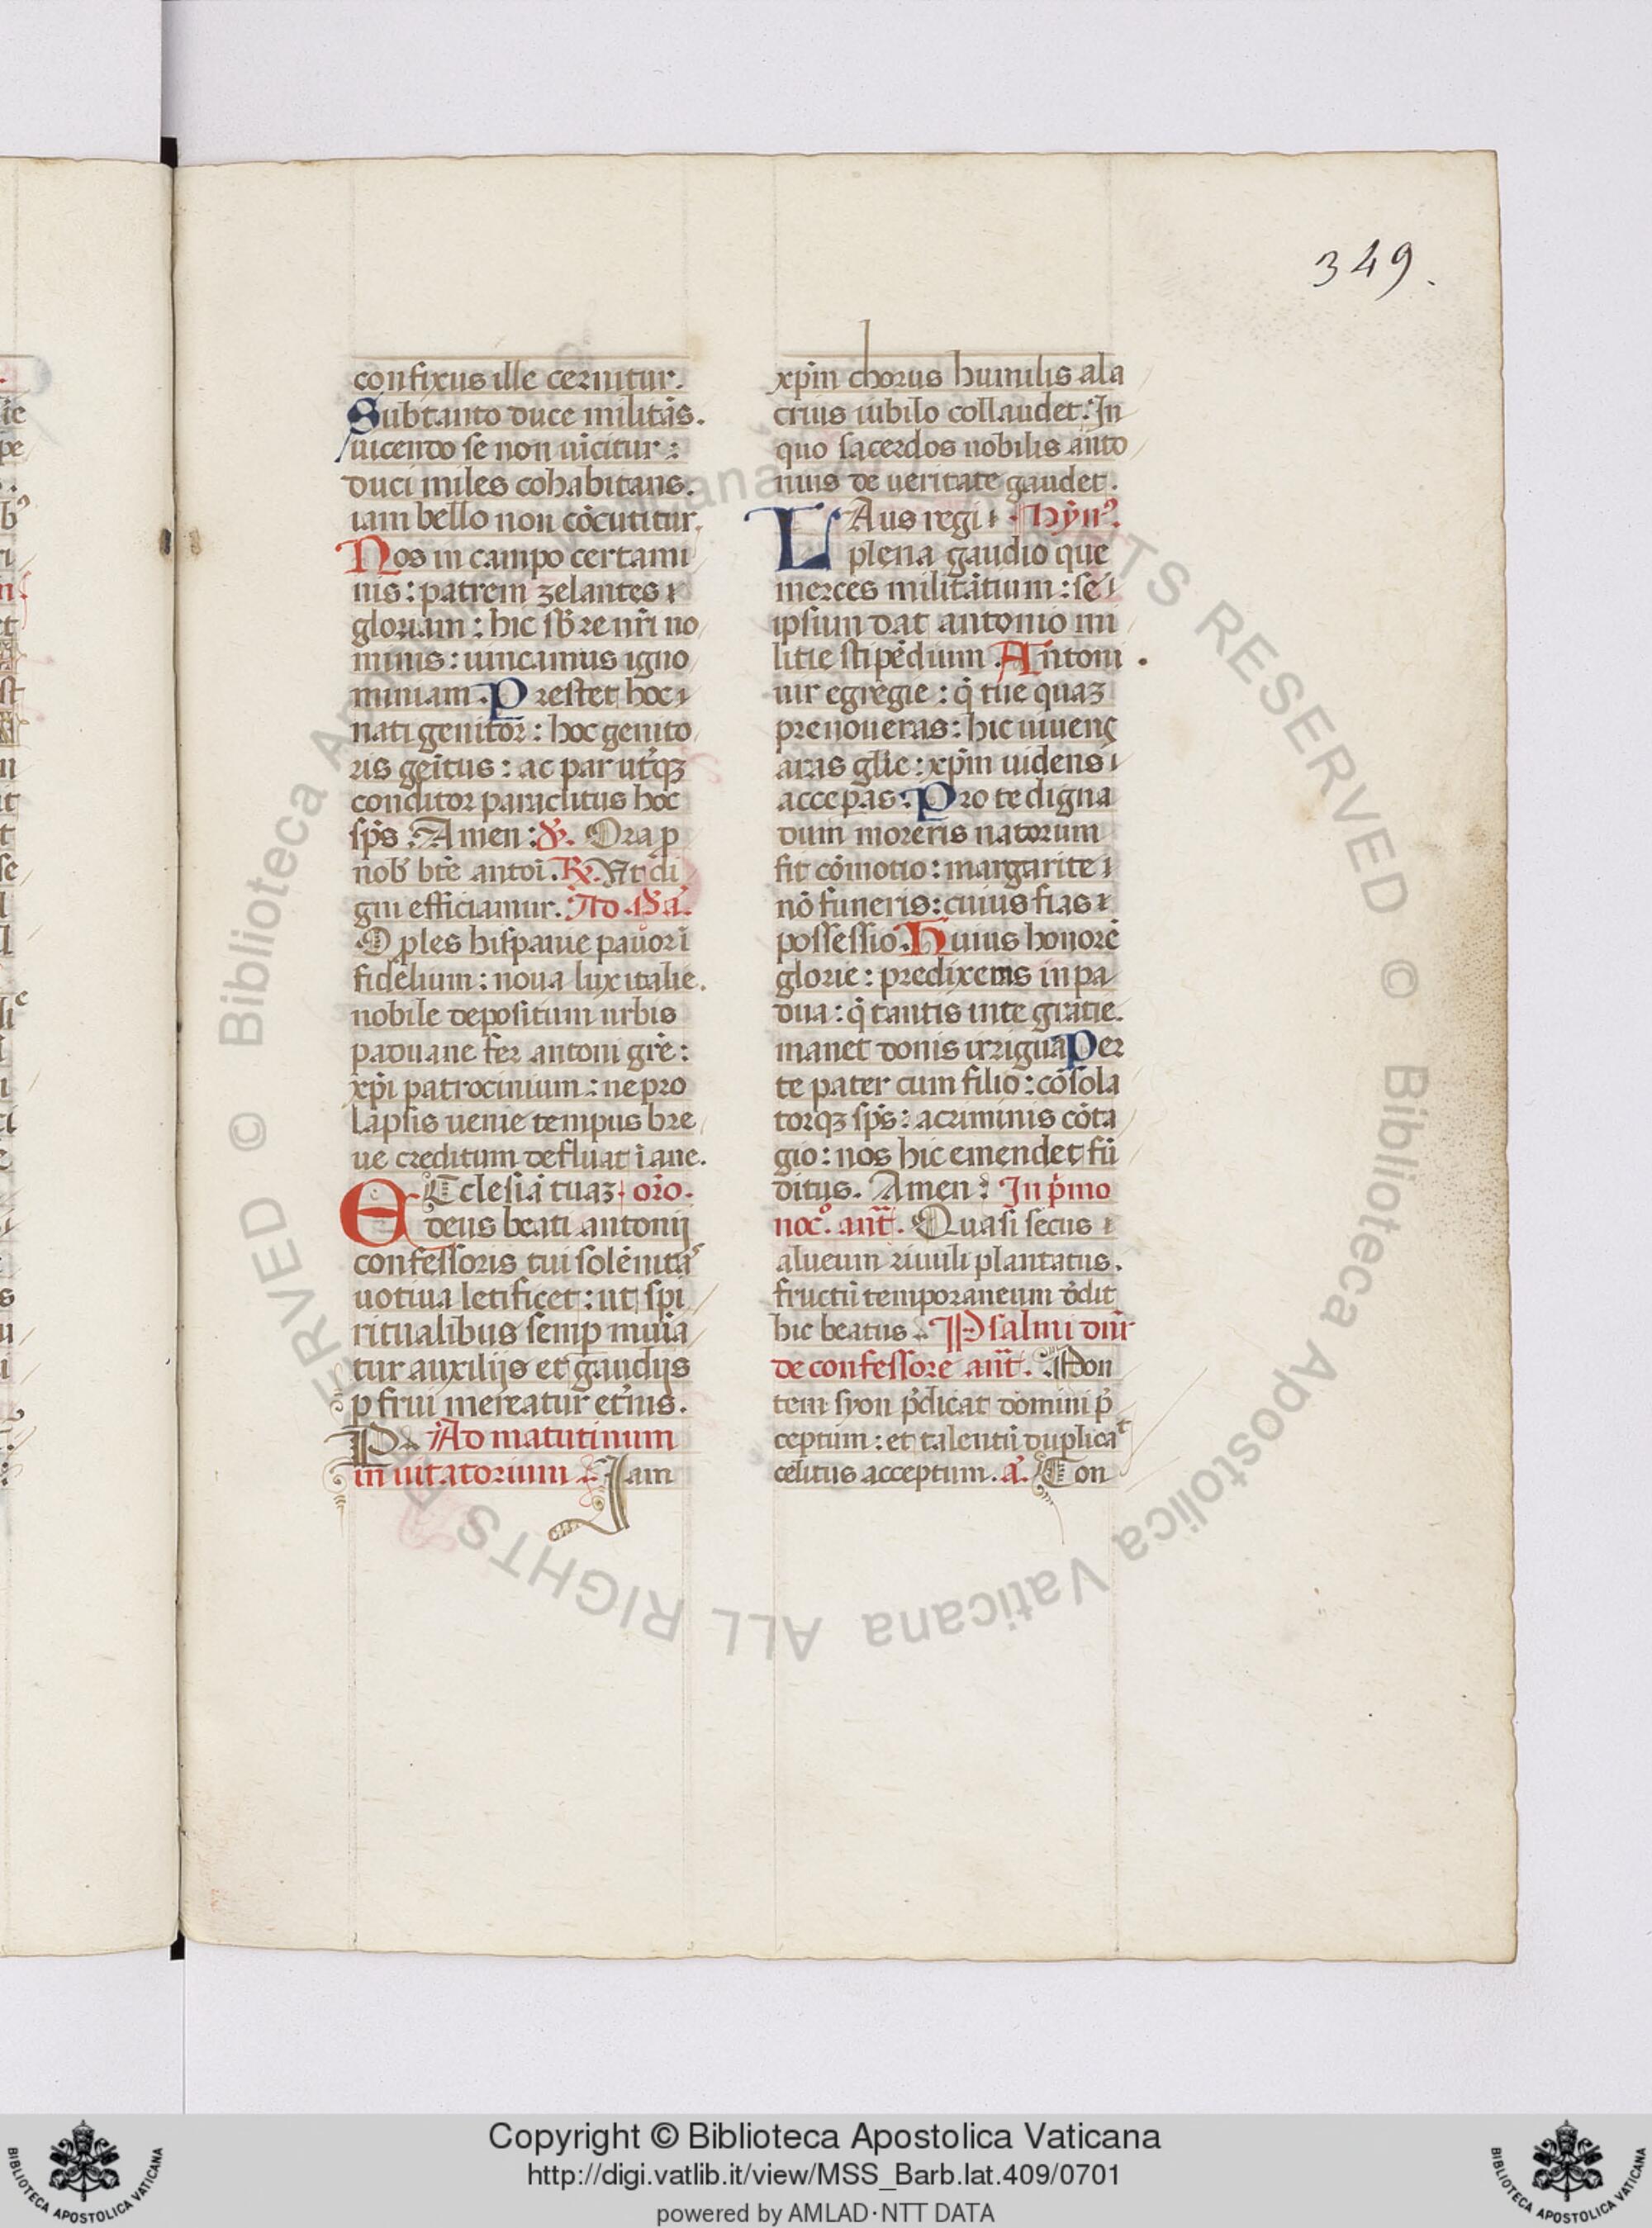 349.
confixus ille cernitur.
Sub tanto duce militās.
uīcendo se non uīcitur:
duci miles cohabitans.
iam bello non cōcutitur.
Nos in campo certami
nis: patrem zelantes
gloriam: hic sƀ re nr̄i no
minis: uincamus igno
miniam. Prestet hoc
nati genitor: hoc genito
ris geītus: ac par utqꝫ
conditor paraclitus hoc
sp̄s. Amen: ℣. Ora ꝓ
nob̄ btē antoī. ℟. Ut di
gni efficiamur. Ad
O ples hispanie pauor ī
fidelium: noua lux italie.
nobile depositum urbis
paduane fer antoni gr̄e:
xp̄i patrocinium: ne pro
lapsis uenie tempus bre
ue creditum defluat īane.
ECclesiā tuaꝫ or̄o.
deus beati antonij
confessoris tui solēnitaˢ
uotiua letificet: ut spi
ritualibus semꝑ muīa
tur auxilijs et gaudijs
ꝑfrui mereatur et̄nis.
P Ad matutinum
in uitatorium. Iam
xp̄m chorus humilis ala
crius iubilo collaudet. In
quo sacerdos nobilis anto
nius de ueritate gaudet.
LAus regi Hyn̄ꝰ.
plena gaudio que
merces militātium: se
ipsum dat antonio mi
litie stipēdium. Antoni
uir egregie: q̄ tue quaꝫ
prenoueras: hic uiuens
aras gl̄ie: xp̄m uidens
acceꝑas: Pro te digna
dum moreris natorum
fit cōmotio: margarite
nō funeris: cuius fias
possessio. Huius honorē
glorie: predixeras in pa
dua: q̄ tantis in te gratie.
manet donis irrigua Per
te pater cum filio: cōsola
torqꝫ sp̄s: a criminis cōta
gio: nos hic emendet fū
ditus. Amen: In p̄mo
noc̄ꝰ. ant̄. Quasi secus
alueum riuuli plantatus.
fructū temporaneum dedit
hic beatus. Psalmi
de confessore ant̄. Mon
tem syon p̄dicat domini p̄
ceptum: et talentū duplicaᵗ
celitus acceptum. a. Con
Copyright © Biblioteca Apostolica Vaticana
http://digi.vatlib.it/view/MSS_Barb.lat.409/0701
powered by AMLAD·NTT DATA
© Biblioteca Apostolica Vaticana ALL RIGHTS RESERVED
BIBLIOTECA APOSTOLICA VATICANA
BIBLIOTECA APOSTOLICA VATICANA